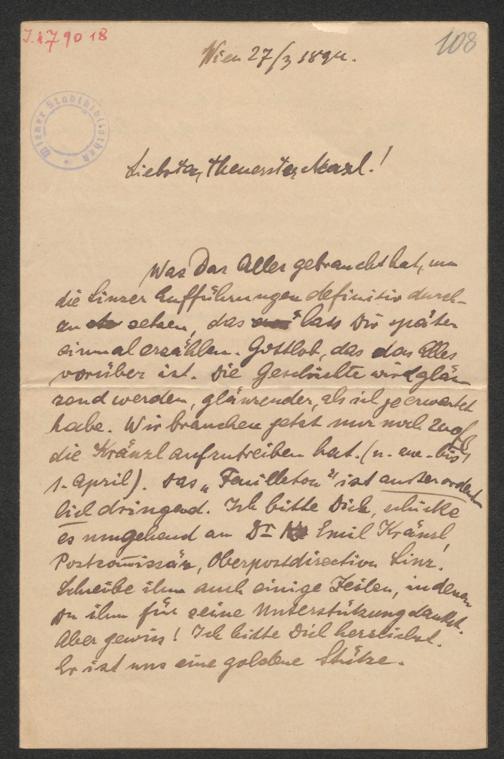 J.N 79018
108
Wien 27/3 1894.
Wiener Stadtbibliothek
Liebster, theuerster Mayl!
Was Das Alles gebraucht hat, um
die Linzer Aufführungen definitiv durch-
zu setzen, das lass Dir später
einmal erzählen. Gottlob, das das Alles
vorüber ist. Die Geschichte wird glän
zend werden, glänzender, als ich je erwartet
habe. Wir brauchen jetzt nur noch 200 fl
die Kränzl aufzutreiben hat. (u. zw. bis
1. April). Das „Feuilleton" ist ausserordent
lich dringend. Ich bitte Dich, schicke
es umgehend an Dr Emil Kränzl
Postcomissär, Oberpostdirection Linz.
Schreibe ihm auch einige Zeilen, in denen
Du ihm für seine Unterstützung dankst.
Aber gewiss! Ich bitte Dich herzlichst.
Er ist uns eine goldene Stütze.